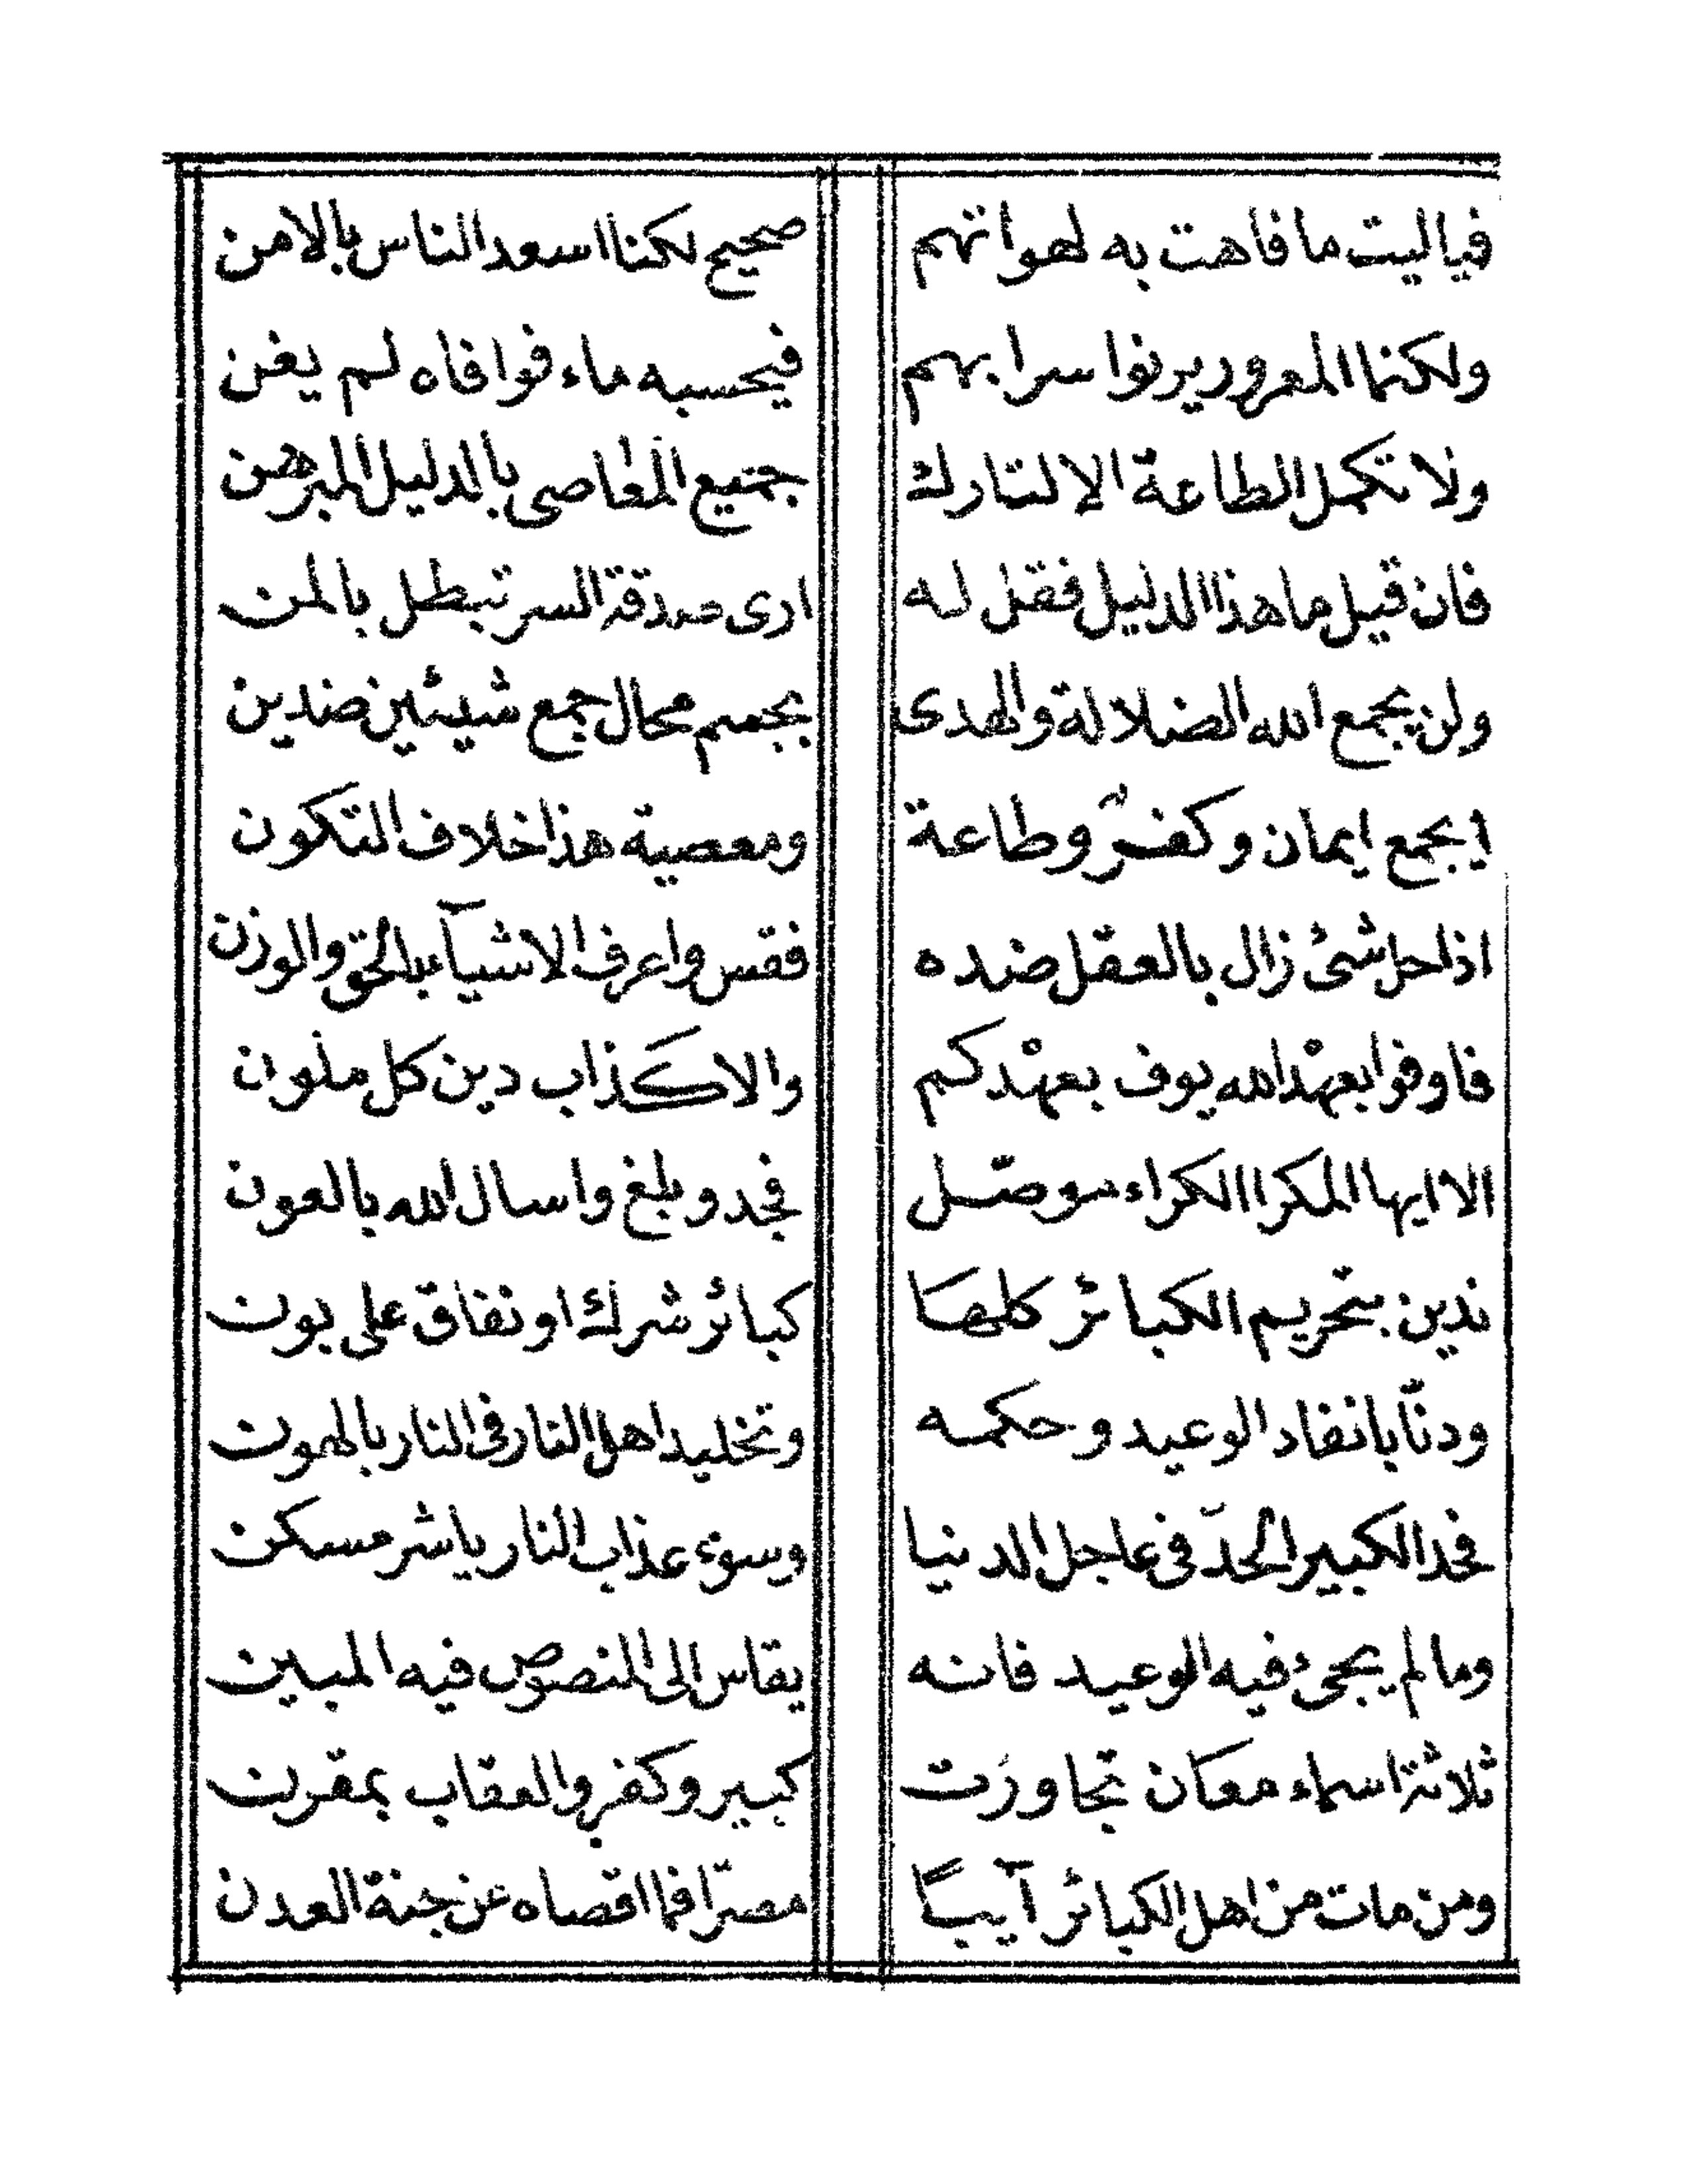 فياليت ما فاهت به لهواتهم صحيح لكنا اسعد الناس بالامن
ولكنما المعرور يرنوا سرا بهم فيحسبه ماء فوافاه لم يغن
ولا تكمل الطاعة الا لتارك جميع المعاصى بالدليل المبرهن
فان قيل ما هذا الدليل فقل له ارى صدقة السر تبطل بالمن
ولن يجمع الله الضلالة والهدى بجسم محال جمع شيئين ضدين
ايجمع ايمان وكفر وطاعة ومعصية هذا خلاف التكون
اذا حل شئ زال بالعقل ضده فقس واعرف الاشيآء بالحق والوزن
فاوفوا بعهد الله يوف بعهدكم والاكذاب دين كل ملوان
الا ايها المكرا الكراء سوصّل فجد وبلغ واسال الله بالعون
ندين بتحريم الكبائر كلها كبائر شرك او نفاق على بون
ودنّا بانفاد الوعيد وحكمه وتخليد اهل النار فى النار بالهون
فحذ الكبير الحدّ فى عاجل الدنيا وسوء عذاب النار يا شر مسكن
وما لم يجئ فيه الوعيد فانه يقاس الى المنصوص فيه المبين
ثلاثة اسماء معان تجاورت كبير وكفر والعقاب بمقرن
ومن مات من اهل الكبائر آيبًا مصرّا فما اقصاه عن جنة العدن